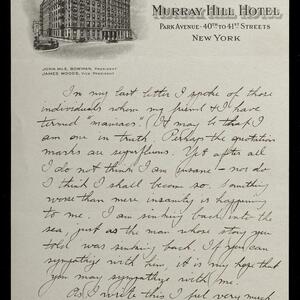 MURRAY HILL HOTEL
PARK AVENUE · 40TH TO 41ST STREETS
NEW YORK
JOHN MCE. BOWMAN, PRESIDENT
JAMES WOODS, VICE PRESIDENT
In my last letter I spoke of those
individuals whom my friend & I have
termed "maniacs" (It may be that I
am one in truth. Perhaps the quotation
marks are superfluous. Yet after all
I do not think I am insane – nor do
I think I shall become so. Something
worse than mere insanity is happening
to me. I am sinking back into the
sea, just as the man whose story you
told was sinking back. If you can
sympathize with him, it is my hope that
you may sympathize with me.)
As I write this I feel very much